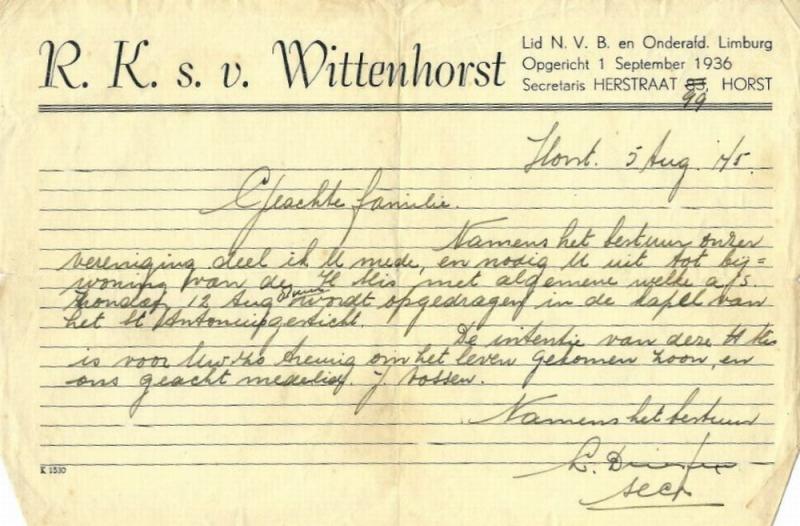 R. K. s. v. Wittenhorst
Lid N. V. B. en Onderafd. Limburg
Opgericht 1 September 1936
Secretaris HERSTRAAT 83, HORST
99
Horst. 5 Aug. '45.
Geachte familie.
Namens het bestuur onzer
vereniging deel ik U mede, en nodig U uit tot bij=
woning van de H Mis met algemene welke a.s.
Zondag 12 Aug 8 uur wordt opgedragen in de kapel van
het St Antoniusgesticht.
De intentie van deze H Mis
is voor Uw zo treurig om het leven gekomen zoon, en
ons geacht medelid. J. Vossen.
Namens het bestuur
L.
secr
K 1530